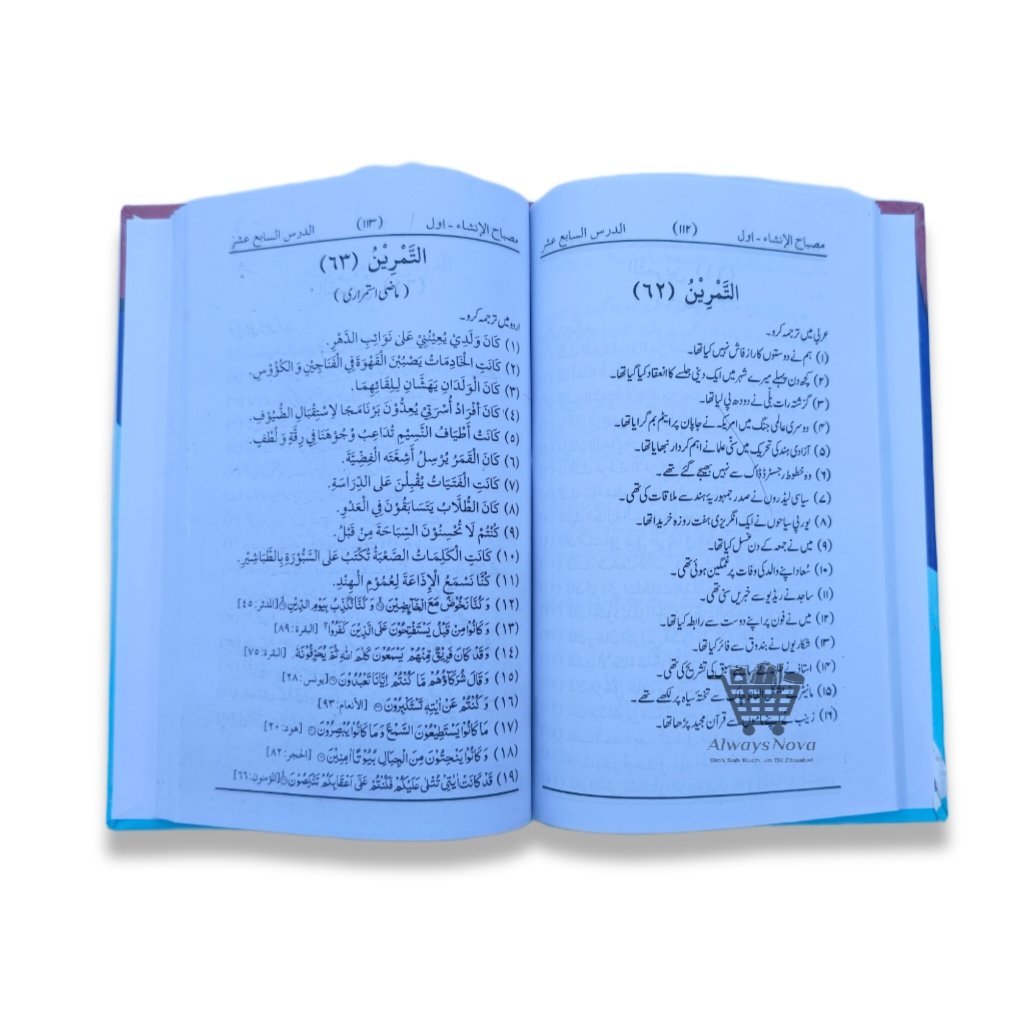 مصباح الإنشاء - اول (۱۱۲) الدرس السابع عشر
التَّمْرِيْنُ (٦٢)
عربی میں ترجمہ کرو۔
(۱) ہم نے دوستوں کا راز فاش نہیں کیا تھا۔
(۲) کچھ دن پہلے میرے شہر میں ایک دینی جلسے کا انعقاد کیا گیا تھا۔
(۳) گزشتہ رات بلّی نے دودھ پی لیا تھا۔
(۴) دوسری عالمی جنگ میں امریکہ نے جاپان پر ایٹم بم گرایا تھا۔
(۵) آزادی ہند کی تحریک میں سنّی علما نے اہم کردار نبھایا تھا۔
(۶) وہ خطوط رجسٹرڈ ڈاک سے نہیں بھیجے گئے تھے۔
(۷) سیاسی لیڈروں نے صدر جمہوریۂ ہند سے ملاقات کی تھی۔
(۸) یورپی سیاحوں نے ایک انگریزی ہفت روزہ خریدا تھا۔
(۹) میں نے جمعہ کے دن غسل کیا تھا۔
(۱۰) سُعاد اپنے والد کی وفات پر غمگین ہوئی تھی۔
(۱۱) ساجد نے ریڈیو سے خبریں سنی تھی۔
(۱۲) میں نے فون پر اپنے دوست سے رابطہ کیا تھا۔
(۱۳) شکاریوں نے بندوق سے فائر کیا تھا۔
(۱۴) استاذ نے سبق کی تشریح کی تھی۔
(۱۵) سے تختۂ سیاہ پر لکھے تھے۔
(۱۶) زینب سے قرآن مجید پڑھا تھا۔
Always Nova
Woh Sab Kuch, Jo Dil Chaahe!
مصباح الإنشاء - اول (۱۱۳) الدرس السابع عشر
التَّمْرِيْنُ (٦٣)
(ماضی استمراری)
اردو میں ترجمہ کرو۔
(١) كَانَ وَلَدِيْ يُعِيْنُنِيْ عَلىٰ نَوَائِبِ الدَّهْرِ.
(٢) كَانَتِ الْخَادِمَاتُ يَصْبُبْنَ الْقَهْوَةَ فِي الْفَنَاجِيْنِ وَالْكُؤُوْسِ.
(٣) كَانَ الْوَلَدَانِ يَهَشَّانِ لِلِقَائِهِمَا.
(٤) كَانَ أَفْرَادُ أُسْرَتِيْ يُعِدُّوْنَ بَرْنَامَجًا لِاسْتِقْبَالِ الضُّيُوْفِ.
(٥) كَانَتْ أَطْيَافُ النَّسِيْمِ تُدَاعِبُ وُجُوْهَنَا فِيْ رِقَّةٍ وَلُطْفٍ.
(٦) كَانَ الْقَمَرُ يُرْسِلُ أَشِعَّتَه الْفِضِّيَّةَ.
(٧) كَانَتِ الْفَتَيَاتُ يُقْبِلْنَ عَلَى الدِّرَاسَةِ.
(٨) كَانَ الطُّلَّابُ يَتَسَابَقُوْنَ فِي الْعَدْوِ.
(٩) كُنْتُمْ لَا تُحْسِنُوْنَ السِّبَاحَةَ مِنْ قَبْلُ.
(١٠) كَانَتِ الْكَلِمَاتُ الصَّعْبَةُ تُكْتَبُ عَلَى السَّبُّوْرَةِ بِالطَّبَاشِيْرِ.
(١١) كُنَّا نَسْمَعُ الْإِذَاعَةَ لِعُمُوْمِ الْهِنْدِ.
(١٢) وَكُنَّا نَخُوْضُ مَعَ الْخَآئِضِيْنَ ۝ وَكُنَّا نُكَذِّبُ بِيَوْمِ الدِّيْنِ ۝ [المدثر: ٤٥]
(١٣) وَكَانُوْا مِنْ قَبْلُ يَسْتَفْتِحُوْنَ عَلَى الَّذِيْنَ كَفَرُوْا [البقرة: ٨٩]
(١٤) وَقَدْ كَانَ فَرِيْقٌ مِّنْهُمْ يَسْمَعُوْنَ كَلٰمَ اللهِ ثُمَّ يُحَرِّفُوْنَهٗ [البقرة: ٧٥]
(١٥) وَقَالَ شُرَكَآؤُهُمْ مَّا كُنْتُمْ اِيَّانَا تَعْبُدُوْنَ ۝ [يونس: ٢٨]
(١٦) وَكُنْتُمْ عَنْ اٰيٰتِهٖ تَسْتَكْبِرُوْنَ ۝ [الأنعام: ٩٣]
(١٧) مَا كَانُوْا يَسْتَطِيْعُوْنَ السَّمْعَ وَمَا كَانُوْا يُبْصِرُوْنَ ۝ [هود: ٢٠]
(١٨) وَكَانُوْا يَنْحِتُوْنَ مِنَ الْجِبَالِ بُيُوْتًا اٰمِنِيْنَ ۝ [الحجر: ٨٢]
(١٩) قَدْ كَانَتْ اٰيٰتِيْ تُتْلٰى عَلَيْكُمْ فَكُنْتُمْ عَلٰٓى اَعْقَابِكُمْ تَنْكِصُوْنَ ۝ [المؤمنون: ٦٦]